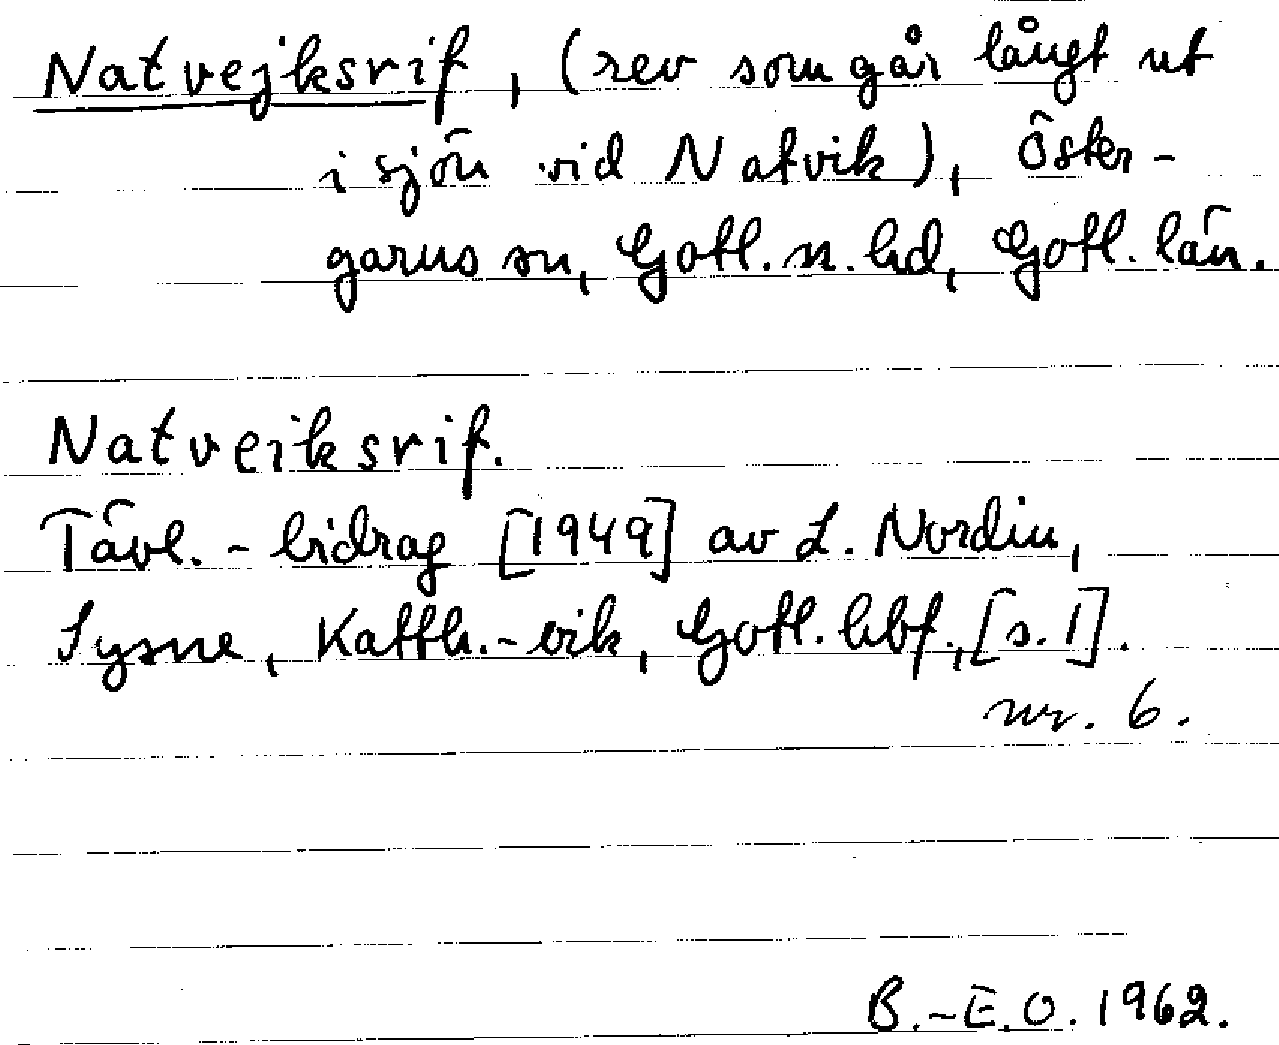 Natvejksrif, (rev som går långt ut
i sjön vid Natvik), Öster-
garns sn, Gotl. n. hd, Gotl. län.
Natveiksrif.
Tävl.-bidrag [1949] av L. Nordin,
Sysne, Katth.-vik, Gotl. hbf., [s. 1].
nr. 6.
B.-E.O. 1962.